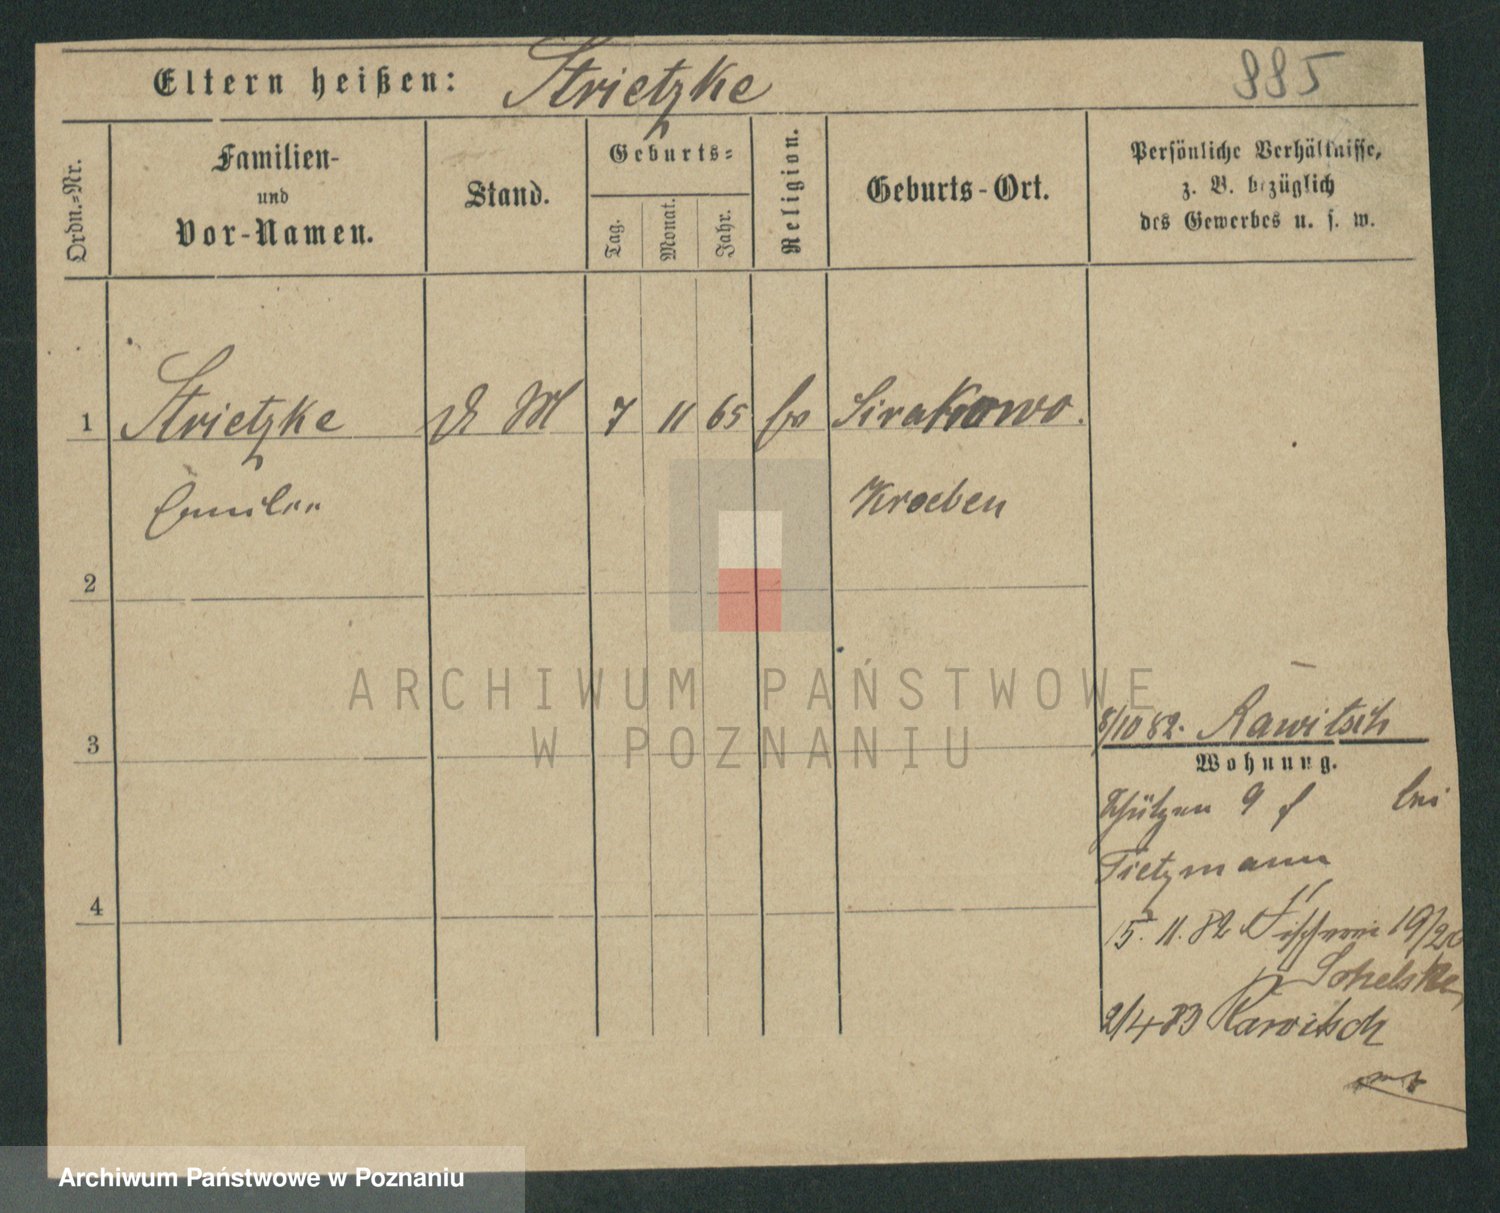 Eltern heißen: Strietzke 885
Ordn.-Nr.
Familien-
und
Vor-Namen.
Stand.
Geburts-
Tag.
Monat.
Jahr.
Religion.
Geburts-Ort.
Persönliche Verhältnisse,
z. B. bezüglich
des Gewerbes u. s. w.
1 Strietzke D M 7 11 65 Sirakowo.
Kroeben
2
3
4
8/10 82. Rawitsch
Wohnung.
Schützen 9 bei
Tietzmann
15. 11. 82 Fischerei 19/20
2/4 83 Rawitsch
ARCHIWUM PAŃSTWOWE
W POZNANIU
Archiwum Państwowe w Poznaniu